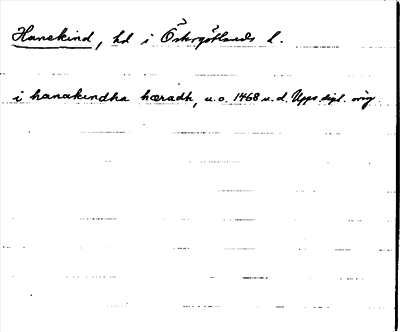 Hanekind, hd i Östergötlands l.
i hanakindha hæradh, u.o. 1468 u.d. Upps dipl. orig.